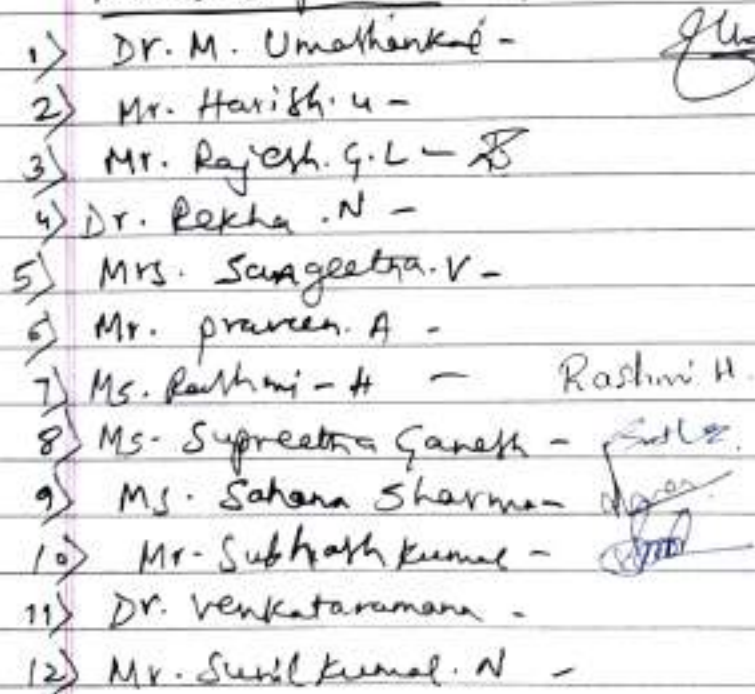 1) Dr. M. Umashankar -
2) Mr. Harish. u -
3) Mr. Rajesh. G. L -
4) Dr. Rekha . N -
5) Mrs. Sangeetha. V -
6) Mr. praveen. A -
7) Ms. Rashmi - H - Rashmi H.
8) Ms. Supreetha Ganesh -
9) Ms. Sahana Sharma -
10) Mr. Subhash Kumar -
11) Dr. Venkataramana -
12) Mr. Sunil Kumar. N -